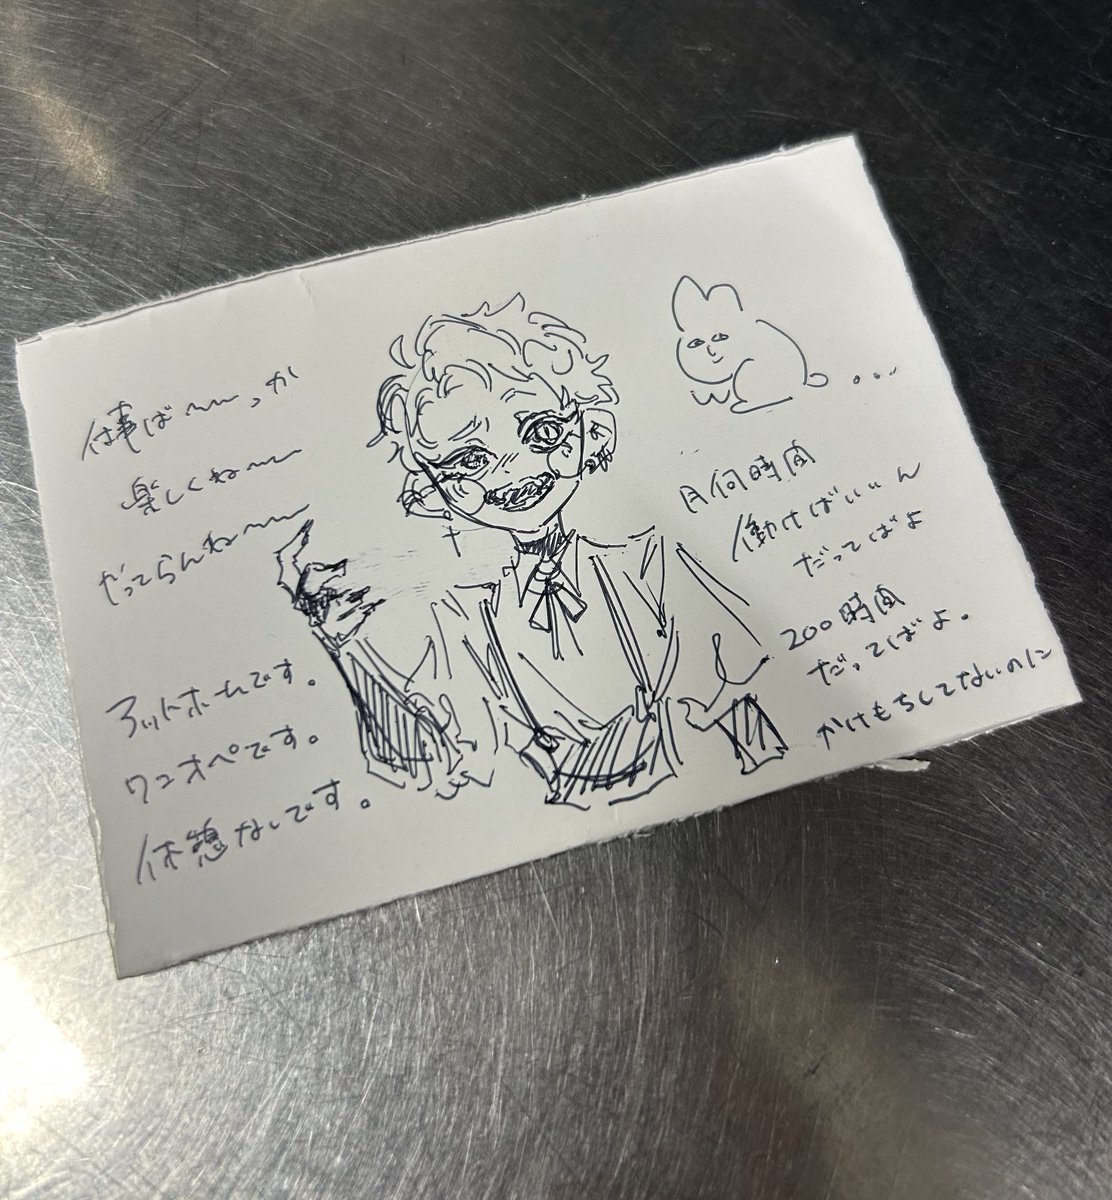 仕事ば〜〜っか
楽しくね〜〜
やってらんね〜〜
アットホームです。
ワンオペです。
休憩なしです。
...
月何時間
働けばいいん
だってばよ
200時間
だってばよ。
かけもちしてないのに